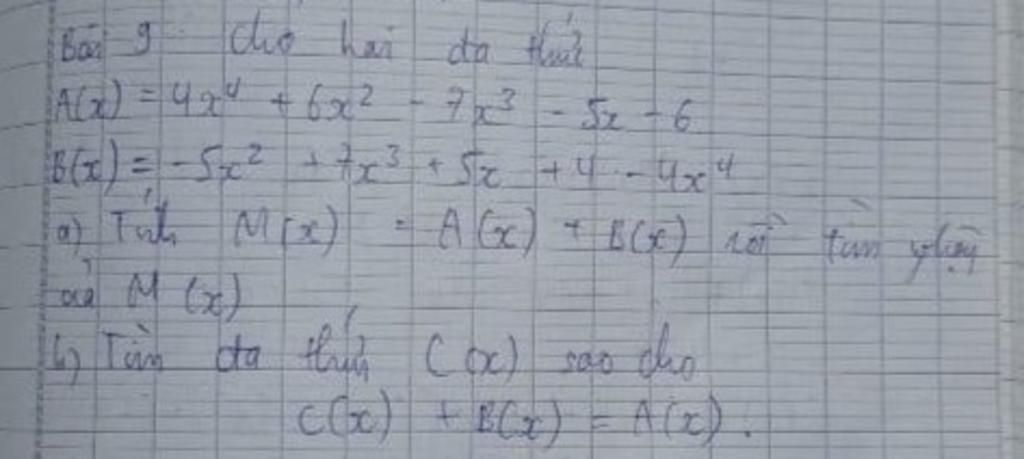 Bài 9 cho hai đa thức
A(x) = 4x⁴ + 6x² - 7x³ - 5x - 6
B(x) = -5x² + 7x³ + 5x + 4 - 4x⁴
a) Tính M(x) = A(x) + B(x) rồi tìm nghiệm
của M(x)
b) Tìm đa thức C(x) sao cho
C(x) + B(x) = A(x).